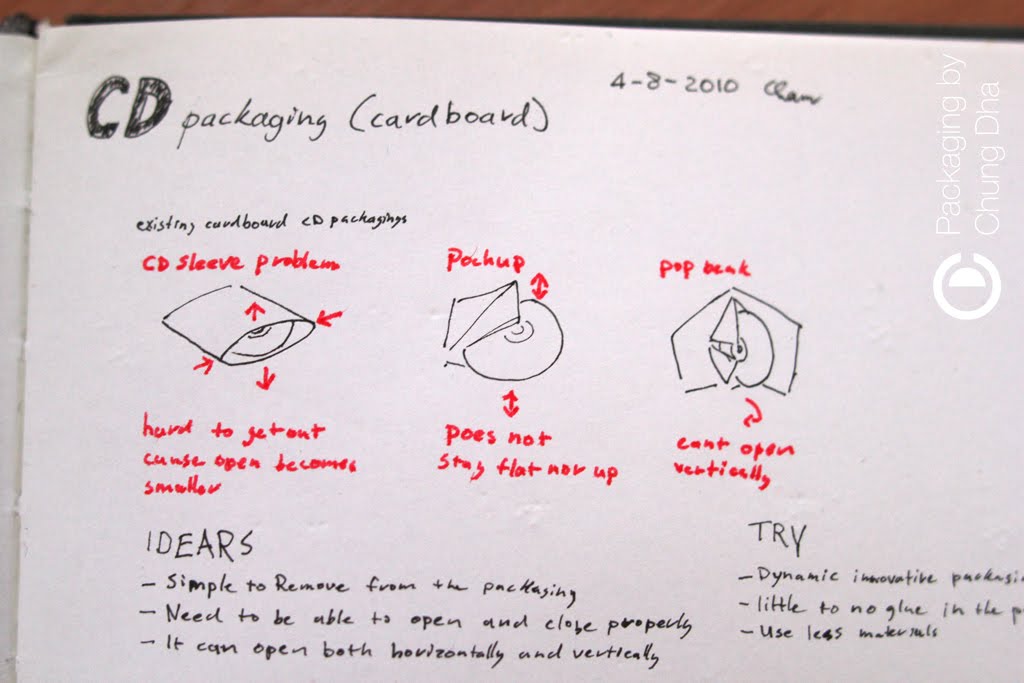 CD packaging (cardboard)
4-8-2010
Packaging by
Chung Dha
existing cardboard CD packagings
CD sleeve problem
hard to get out
cause open becomes
smaller
Pochup
Does not
stay flat nor up
pop beak
cant open
vertically
IDEARS
- Simple to Remove from the packaging
- Need to be able to open and close properly
- It can open both horizontally and vertically
TRY
- Dynamic innovative packagin
- little to no glue in the p
- Use less materials